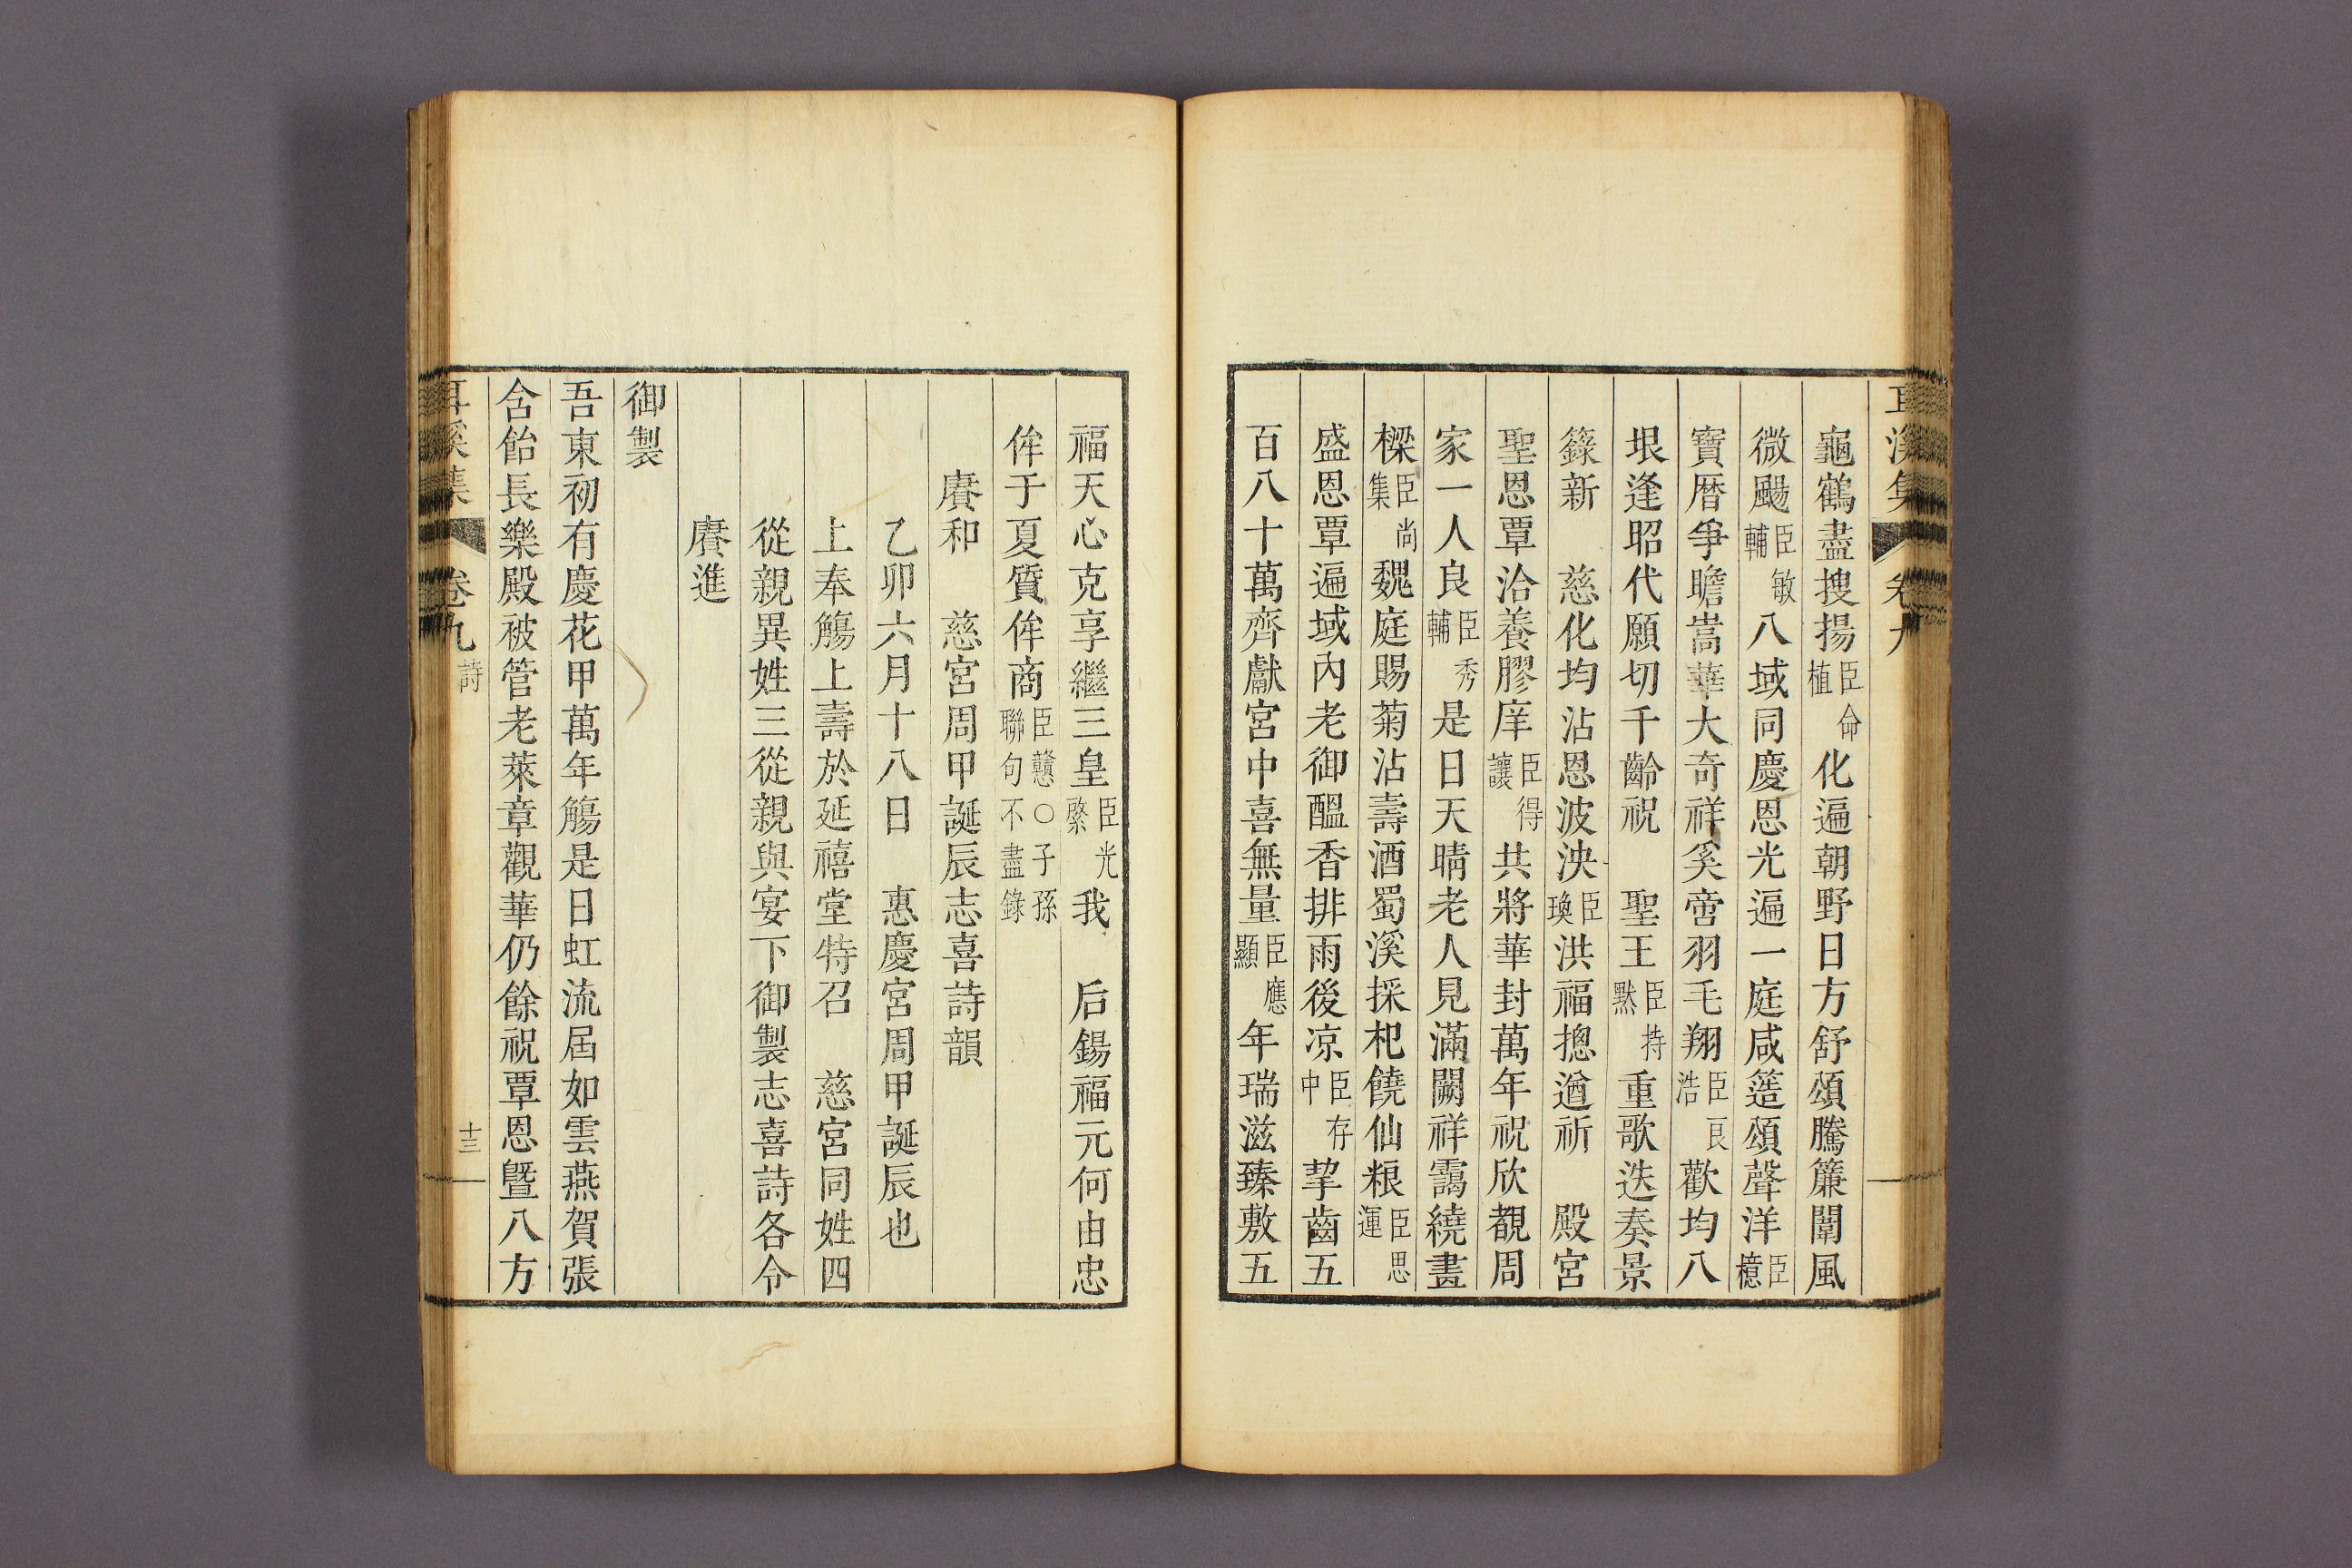 耳溪集 卷九
龜鶴盡搜揚臣命植化遍朝野日方舒頌騰簾闈風
微颺臣敏輔八域同慶恩光遍一庭咸簉頌聲洋臣檍
寶曆爭瞻嵩華大奇祥奚啻羽毛翔臣良浩歡均八
垠逢昭代願切千齡祝 聖王臣持默重歌迭奏景
籙新 慈化均沾恩波泱臣瑍洪福摠遒祈 殿宮
聖恩覃洽養膠庠臣得讓共將華封萬年祝欣覩周
家一人良臣秀輔是日天晴老人見滿闕祥靄繞畫
樑臣尚集魏庭賜菊沾壽酒蜀溪採杞饒仙粮臣思運
盛恩覃遍域內老御醞香排雨後凉臣存中挈齒五
百八十萬齊獻宮中喜無量臣應顯年瑞滋臻敷五
福天心克享繼三皇臣光綮我 后錫福元何由忠
侔于夏質侔商臣戇○子孫聯句不盡錄
賡和 慈宮周甲誕辰志喜詩韻
乙卯六月十八日 惠慶宮周甲誕辰也
上奉觴上壽於延禧堂特召 慈宮同姓四
從親異姓三從親與宴下御製志喜詩各令
賡進
御製
吾東初有慶花甲萬年觴是日虹流屆如雲燕賀張
含飴長樂殿被管老萊章觀華仍餘祝覃恩曁八方
耳溪集 卷九 詩 十三